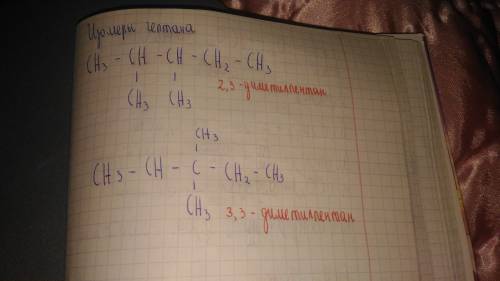 Изомеры гептана
CH3 - CH - CH - CH2 - CH3
CH3 CH3
2,3-диметилпентан
CH3
CH3 - CH - C - CH2 - CH3
CH3
3,3-диметилпентан